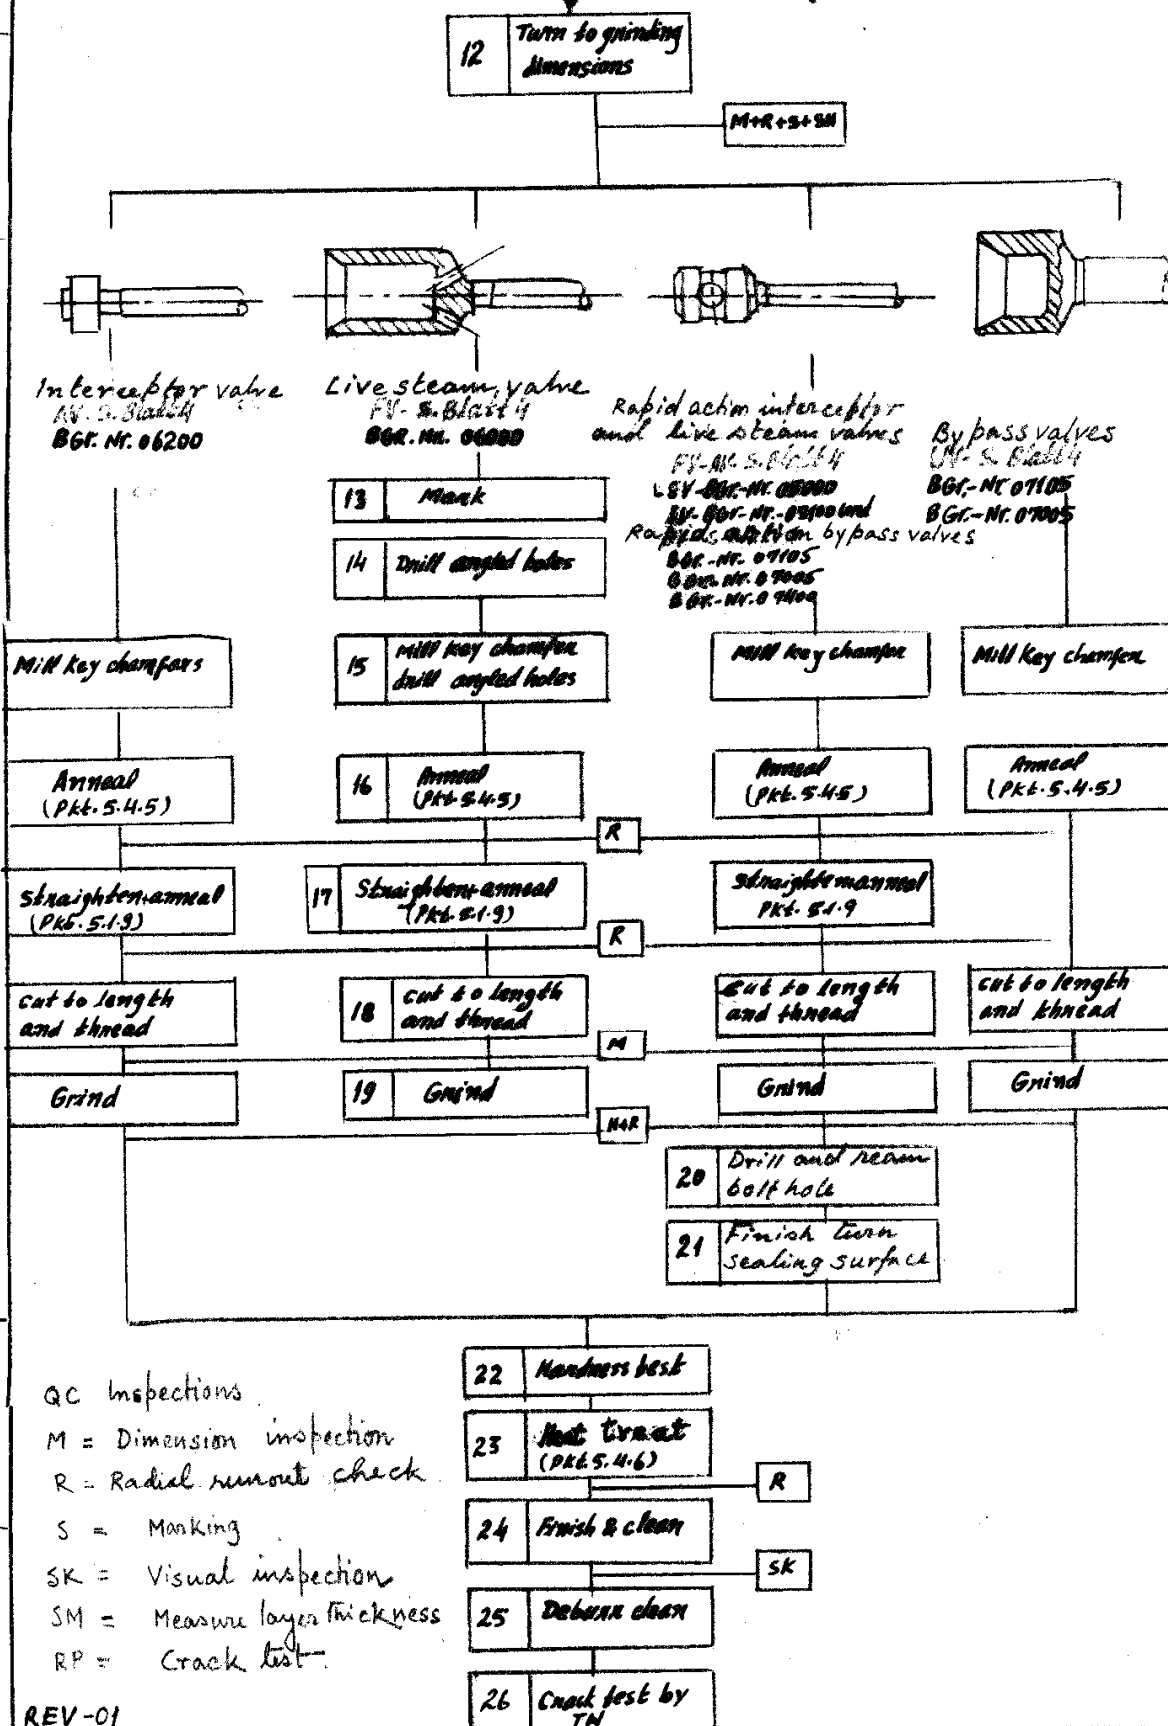 12
Turn to grinding
dimensions
M+R+S+SM
Interceptor valve
AV-S.Blatt 4
BGr. Nr. 06200
Live steam valve
FV- S. Blatt 4
BGR. Nr. 06000
Rapid action interceptor
and live steam valves
FV-AV- S. Blatt 4
Rapid action bypass valves
BGr.-Nr. 07105
BGr.-Nr. 07005
Bypass valves
UV- S. Blatt 4
BGr.-Nr 07105
BGr.-Nr. 07005
13 Mark
14 Drill angled holes
Mill key chamfers
15 Mill key chamfer
drill angled holes
Mill key chamfer
Mill key chamfer
Anneal
(Pkt. 5.4.5)
16 Anneal
(Pkt. 5.4.5)
Anneal
(Pkt. 5.4.5)
Anneal
(Pkt. 5.4.5)
R
Straighten+anneal
(Pkt. 5.1.9)
17 Straighten+anneal
(Pkt. 5.1.9)
Straighten+anneal
Pkt. 5.1.9
R
cut to length
and thread
18 cut to length
and thread
cut to length
and thread
cut to length
and thread
M
Grind
19 Grind
Grind
Grind
M+R
20 Drill and ream
bolt hole
21 Finish turn
sealing surface
22 Hardness test
23 Heat treat
(Pkt. 5.4.6)
R
24 Finish & clean
SK
25 Deburr clean
26 Crack test by
QC Inspections
M = Dimension inspection
R = Radial runout check
S = Marking
SK = Visual inspection
SM = Measure layer thickness
RP = Crack test
REV-01